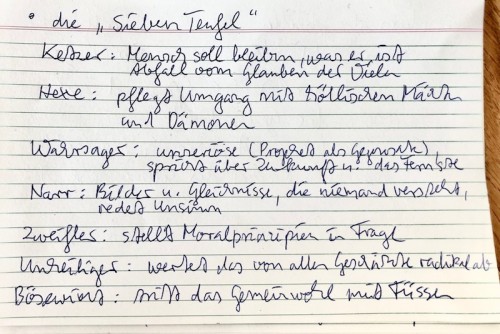 • die „Sieben Teufel“
Ketzer: Mensch soll bleiben, was er ist
Abfall vom Glauben der Vielen
Hexe: pflegt Umgang mit höllischen Mächten
und Dämonen
Wahrsager: unseriöse (Prophet als Gegensatz),
spricht über Zukunft u. das Fernste
Narr: Bilder u. Gleichnisse, die niemand versteht,
redet Unsinn
Zweifler: stellt Moralprinzipien in Frage
Unheiliger: wertet das von allen Geschätzte radikal ab
Bösewicht: tritt das Gemeinwohl mit Füssen